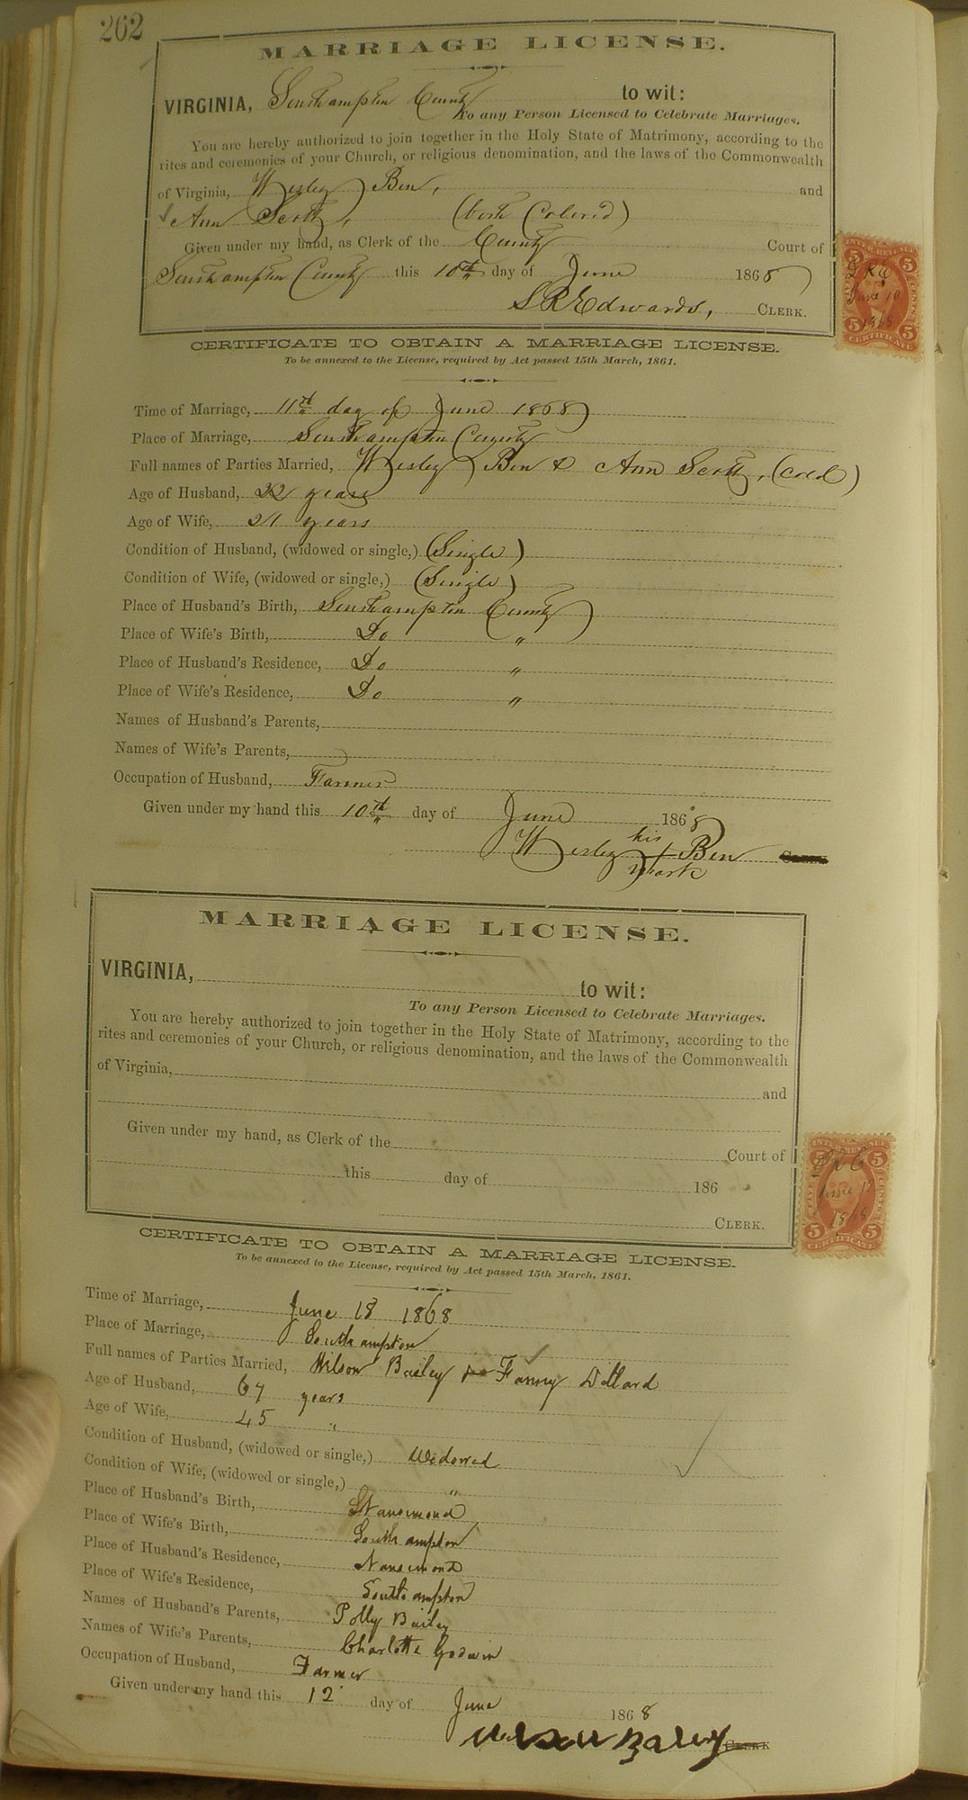 262
MARRIAGE LICENSE.
VIRGINIA, Southampton County to wit:
To any Person Licensed to Celebrate Marriages.
You are hereby authorized to join together in the Holy State of Matrimony, according to the
rites and ceremonies of your Church, or religious denomination, and the laws of the Commonwealth
of Virginia, Wesley Ben, and
Ann Scott, (both Colored)
Given under my hand, as Clerk of the County Court of
Southampton County this 10th day of June 1868
S R Edwards, CLERK.
INTER. REVENUE
5 5
June 10
1868
5 5
CERTIFICATE
CERTIFICATE TO OBTAIN A MARRIAGE LICENSE.
To be annexed to the License, required by Act passed 15th March, 1861.
Time of Marriage, 11th day of June 1868
Place of Marriage, Southampton County
Full names of Parties Married, Wesley Ben & Ann Scott, (Cold)
Age of Husband, 22 years
Age of Wife, 21 years
Condition of Husband, (widowed or single,) (Single)
Condition of Wife, (widowed or single,) (Single)
Place of Husband's Birth, Southampton County
Place of Wife's Birth, Do "
Place of Husband's Residence, Do "
Place of Wife's Residence, Do "
Names of Husband's Parents,
Names of Wife's Parents,
Occupation of Husband, Farmer
Given under my hand this 10th day of June 1868
his
Wesley + Ben CLERK
mark
MARRIAGE LICENSE.
VIRGINIA, to wit:
To any Person Licensed to Celebrate Marriages.
You are hereby authorized to join together in the Holy State of Matrimony, according to the
rites and ceremonies of your Church, or religious denomination, and the laws of the Commonwealth
of Virginia, and
Given under my hand, as Clerk of the Court of
this day of 186
CLERK.
INTER. REVENUE
5 5
June 12
1868
5 5
CERTIFICATE
CERTIFICATE TO OBTAIN A MARRIAGE LICENSE.
To be annexed to the License, required by Act passed 15th March, 1861.
Time of Marriage, June 18 1868
Place of Marriage, Southampton
Full names of Parties Married, Wilson Bailey to Fanny Dillard
Age of Husband, 67 years
Age of Wife, 45 "
Condition of Husband, (widowed or single,) Widowed
Condition of Wife, (widowed or single,) "
Place of Husband's Birth, Nansemond
Place of Wife's Birth, Southampton
Place of Husband's Residence, Nansemond
Place of Wife's Residence, Southampton
Names of Husband's Parents, Polly Bailey
Names of Wife's Parents, Charlotte Godwin
Occupation of Husband, Farmer
Given under my hand this 12 day of June 1868
Wilson Bailey CLERK